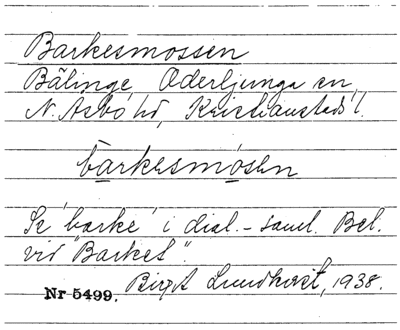 Barkesmossen
Bälinge, Oderljunga sn,
N. Åsbo hd, Kristianstads l.
barkesmosen
Se 'barke' i dial.-saml. Bel.
vid "Barket".
Birgit Lundkvist, 1938.
Nr 5499.